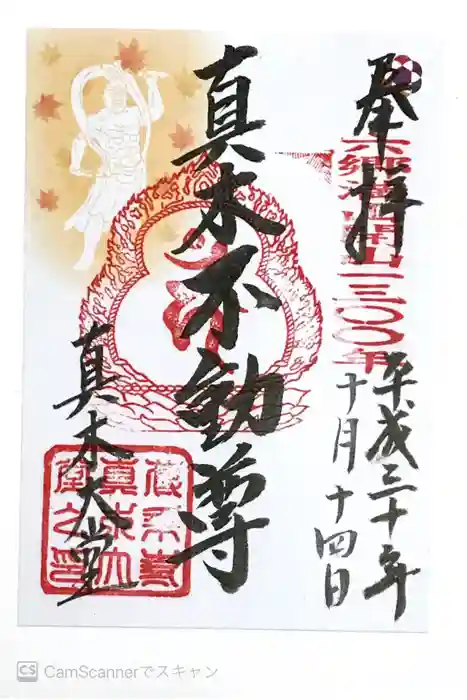 奉拝
六郷満山開山一三〇〇年
平成三十年
十月十四日
真木不動尊
真木大堂
CamScannerでスキャン